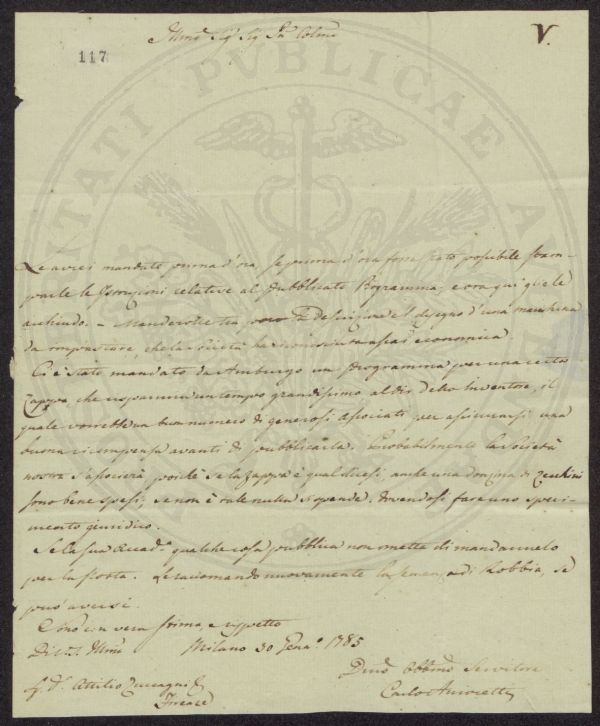 117
V.
Illmo Sig. Sig. Pn Colmo
Le avrei mandate prima d'ora, se prima d'ora fosse stato possibile stam-
parle le Istruzioni relative al pubblicato Programma; e ora qui gliele
acchiudo. - Manderolle tra poco la descrizione e'l disegno d'una macchina
da
che la Società ha riconosciuta assai economica.
Ci è stato mandato da Amburgo un programma per una certa
Zappa che risparmia un tempo grandissimo al dir dello Inventore, il
quale vorrebbe un buon numero di generosi associati per assicurarsi una
buona ricompensa avanti di pubblicarla. Probabilmente la Società
nostra s'associerà poichè se la Zappa è qual diresi, anche una donzina di Zecchini
sono bene spesi; se non è tale nulla si spende, dovendosi fare uno speri-
mento giuridico.
Se la sua Accad.a qualche cosa pubblica non ometta di mandarmelo
per la posta. Le raccomando nuovamente la semenza di Robbia, se
può aversi.
Sono con vera stima e rispetto
Di V.S. Illma
Milano 30 Genn.o 1785
Sig. Dr. Attilio Zuccagni
Firenze
Divmo Obbmo Servitore
Carlo Amoretti
PUBLICAE